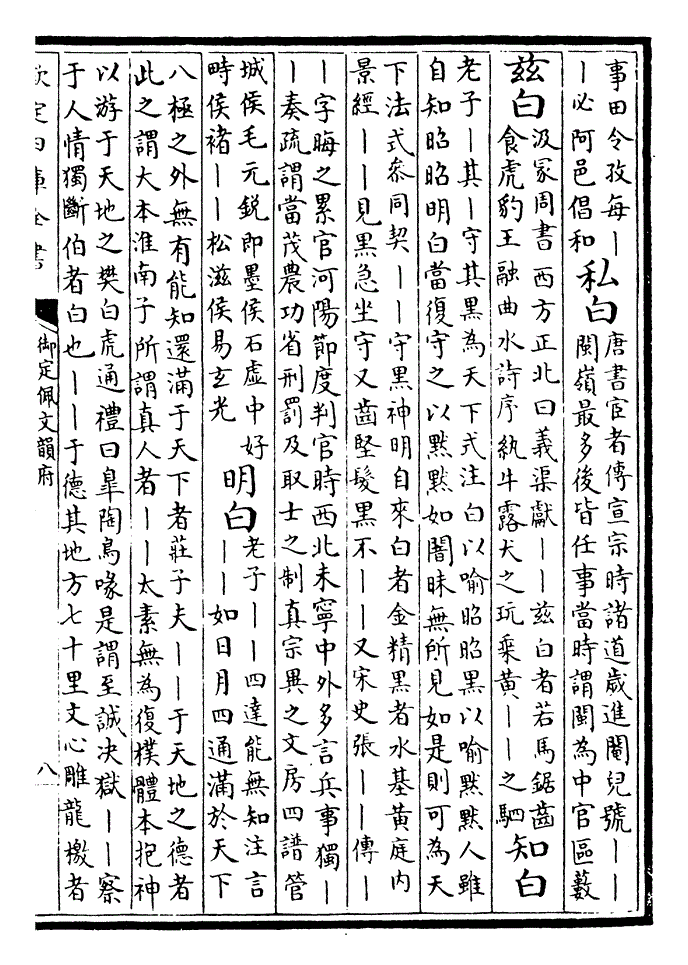 事田令孜每｜
｜必阿邑倡和
私白
唐書宦者傳宣宗時諸道歲進閹兒號｜｜
閩嶺最多後皆任事當時謂閩為中官區藪
兹白
汲冢周書西方正北曰義渠獻｜｜兹白者若馬鋸齒
食虎豹王融曲水詩序紈牛露犬之玩乗黄｜｜之駟
知白
老子｜其｜守其黒為天下式注白以喻昭昭黒以喻黙黙人雖
自知昭昭明白當復守之以黙黙如闇昧無所見如是則可為天
下法式參同契｜｜守黒神明自來白者金精黒者水基黄庭内
景經｜｜見黒急坐守又齒堅髮黒不｜｜又宋史張｜｜傳｜
｜字晦之累官河陽節度判官時西北未寧中外多言兵事獨｜
｜奏疏謂當茂農功省刑罰及取士之制真宗異之文房四譜管
城侯毛元鋭即墨侯石虚中好
畤侯褚｜｜松滋侯易玄光
明白
老子｜｜四達能無知注言
｜｜如日月四通滿於天下
八極之外無有能知還滿于天下者莊子夫｜｜于天地之德者
此之謂大本淮南子所謂真人者｜｜太素無為復樸體本抱神
以游于天地之樊白虎通禮曰臯陶鳥喙是謂至誠决獄｜｜察
于人情獨斷伯者白也｜｜于德其地方七十里文心雕龍檄者
欽定四庫全書
御定佩文韻府
八